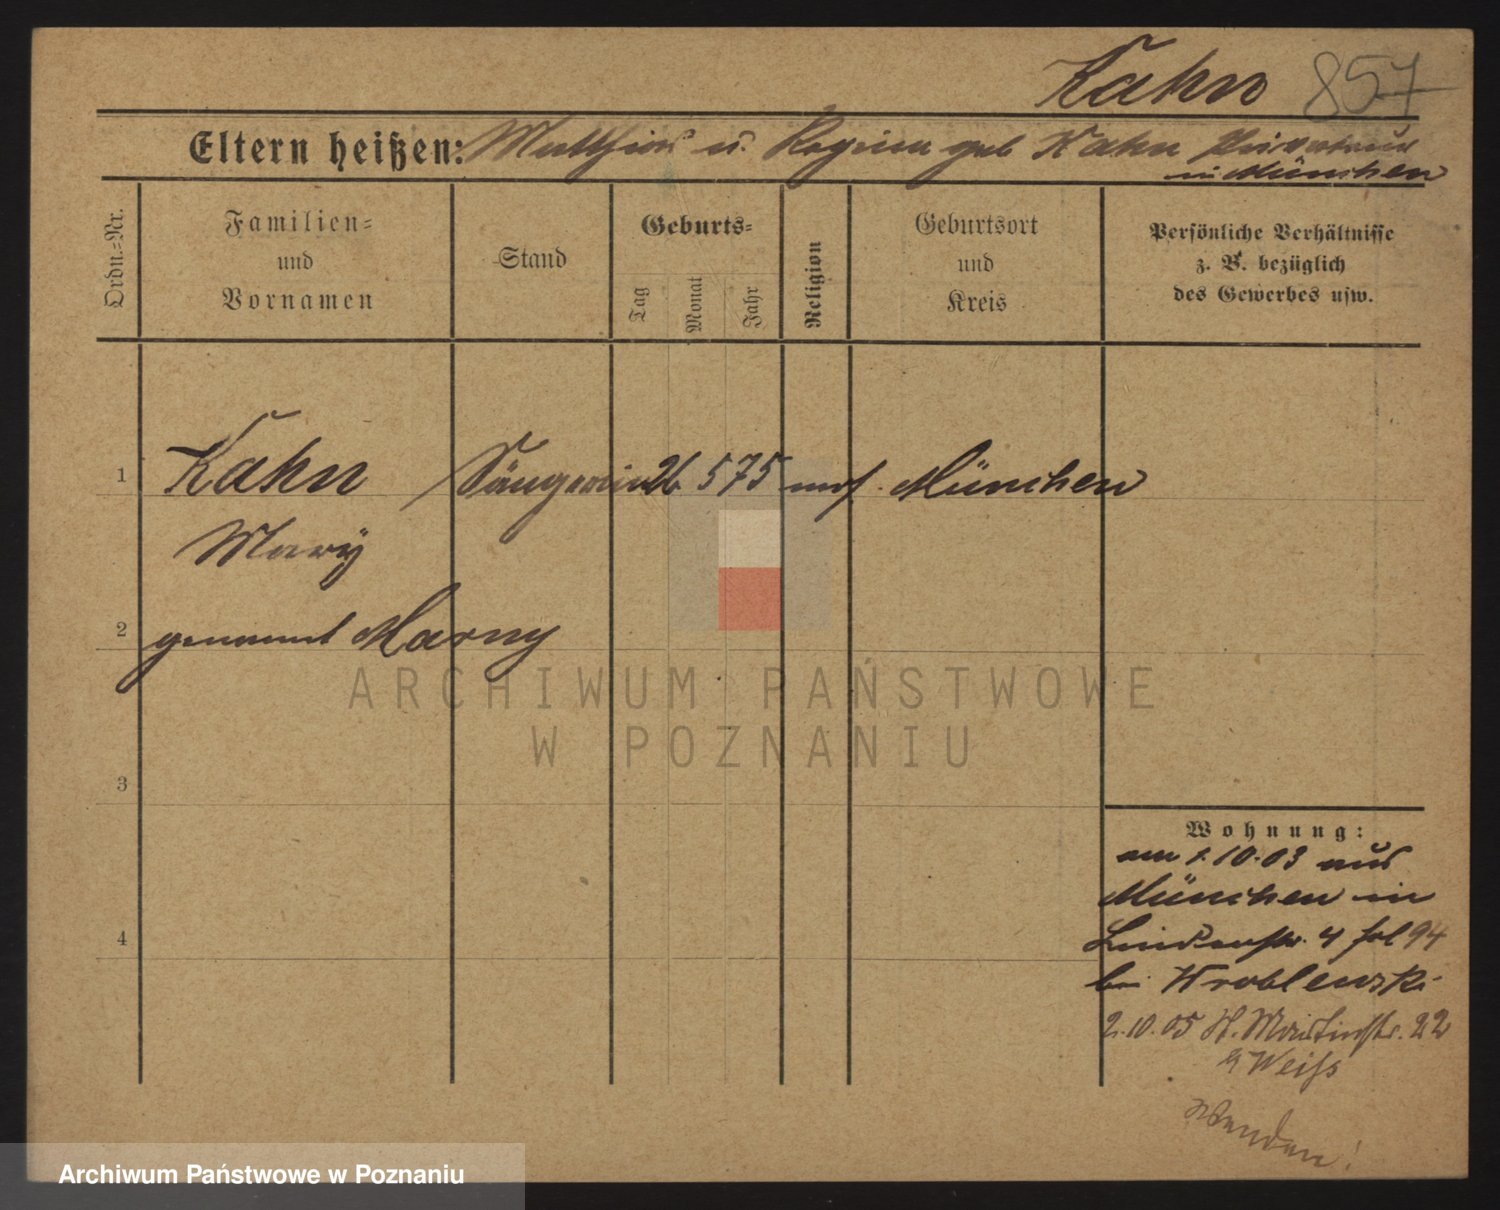 Kahn 857
Eltern heißen: Matthias u. Regina geb Kahn
in München
Ordn.-Nr.
Familien-
und
Vornamen
Stand
Geburts-
Tag
Monat
Jahr
Religion
Geburtsort
und
Kreis
Persönliche Verhältnisse
z. B. bezüglich
des Gewerbes usw.
1 Kahn Sängerin 26 5 75 mos. München
Mary
2 genannt Marny
3
4
Wohnung:
am 1.10.03 aus
München in
Lindenstr. 4 fol 94
bei Wroblewski
2.10.05 St. Martinstr. 22
b/ Weiss
Wenden!
ARCHIWUM PAŃSTWOWE
W POZNANIU
Archiwum Państwowe w Poznaniu